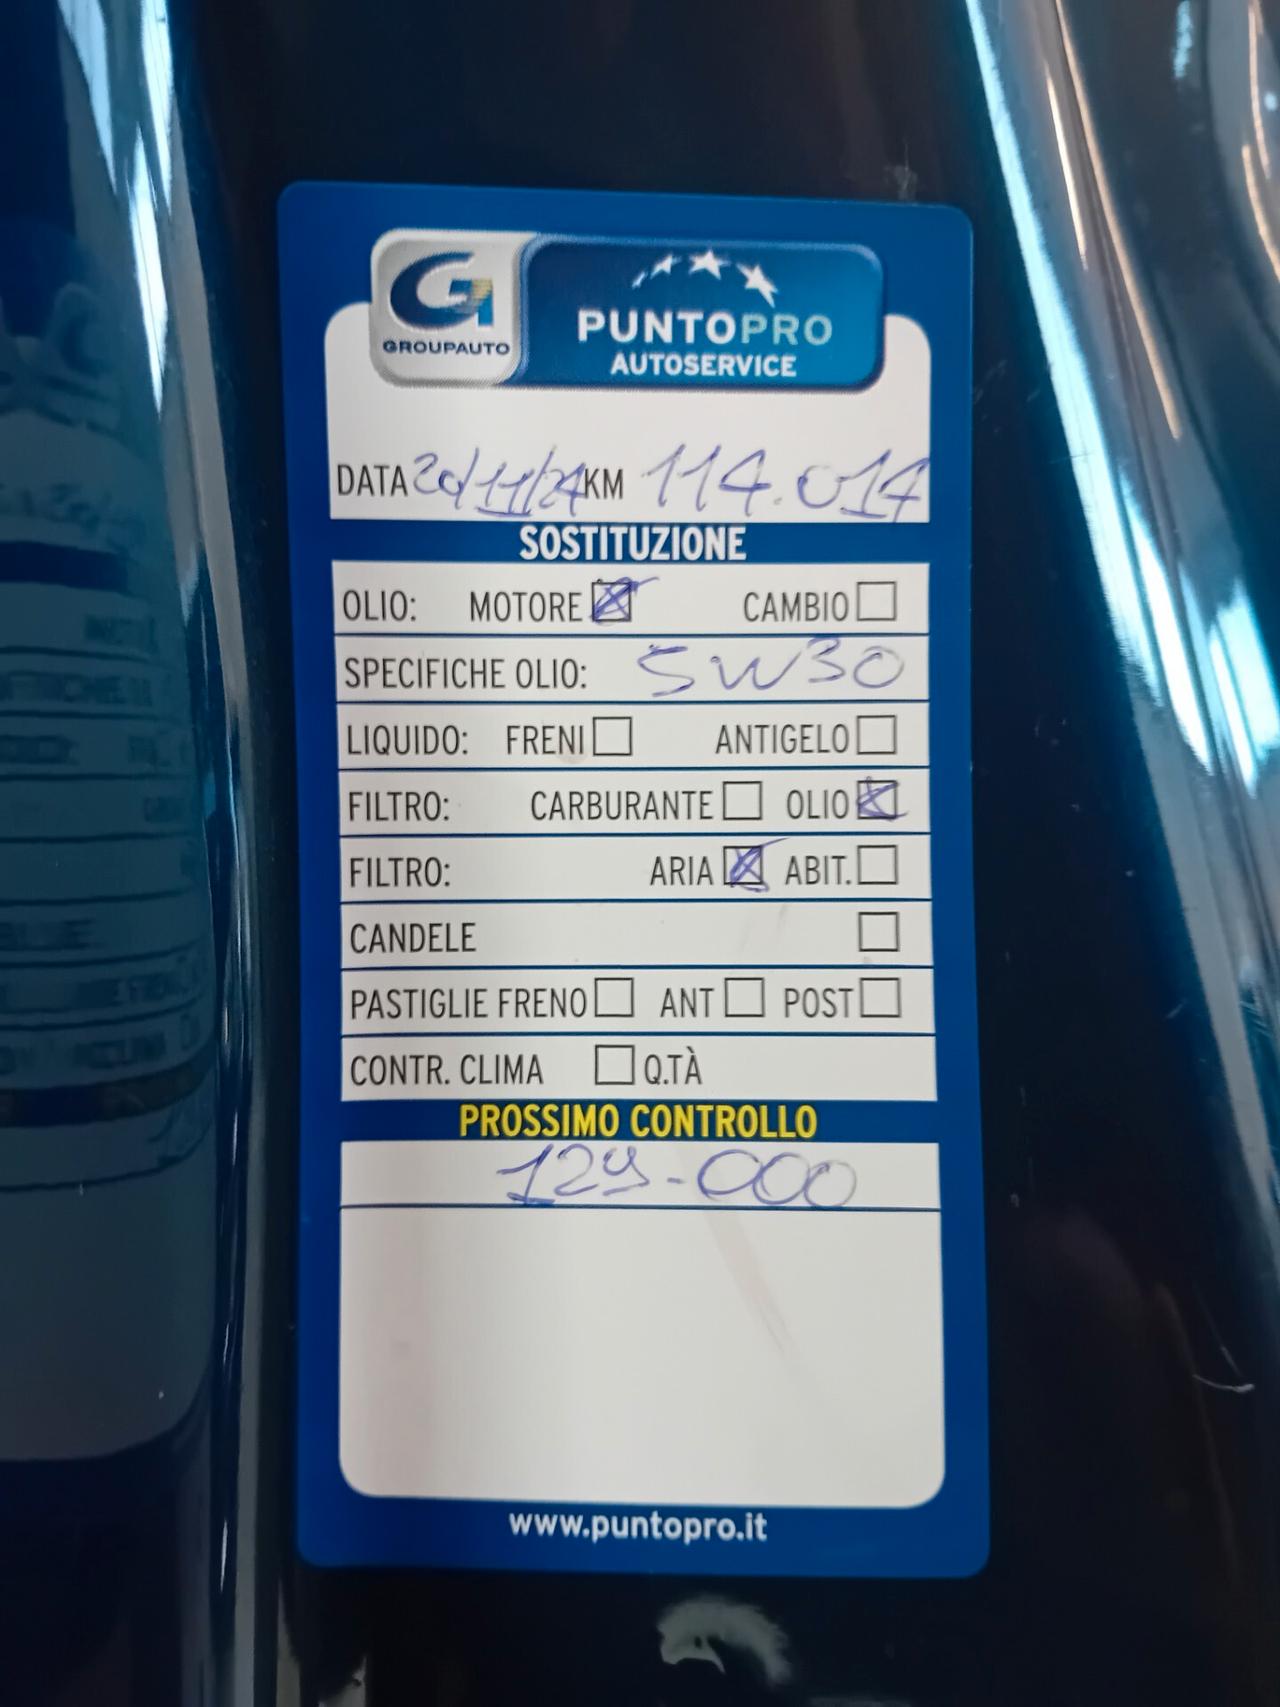 GROUPAUTO
PUNTOPRO
AUTOSERVICE
DATA 20/11/24 KM 114.014
SOSTITUZIONE
OLIO: MOTORE CAMBIO
SPECIFICHE OLIO: 5W30
LIQUIDO: FRENI ANTIGELO
FILTRO: CARBURANTE OLIO
FILTRO: ARIA ABIT.
CANDELE
PASTIGLIE FRENO ANT POST
CONTR. CLIMA Q.TÀ
PROSSIMO CONTROLLO
129.000
www.puntopro.it